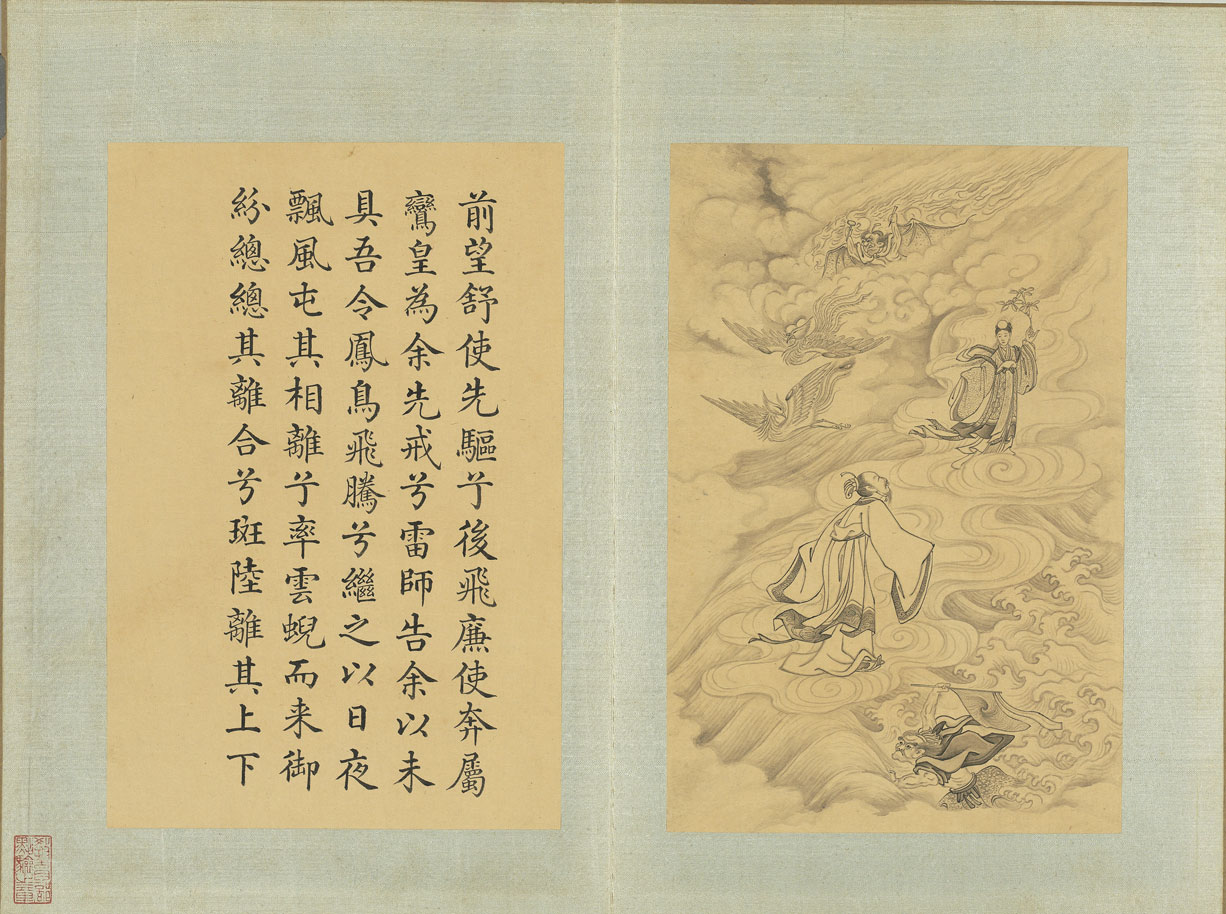 前望舒使先驅兮後飛廉使奔屬
鸞皇為余先戒兮雷師告余以未
具吾令鳳鳥飛騰兮繼之以日夜
飄風屯其相離兮率雲蜺而来御
紛總總其離合兮斑陸離其上下
教育部
點驗之章